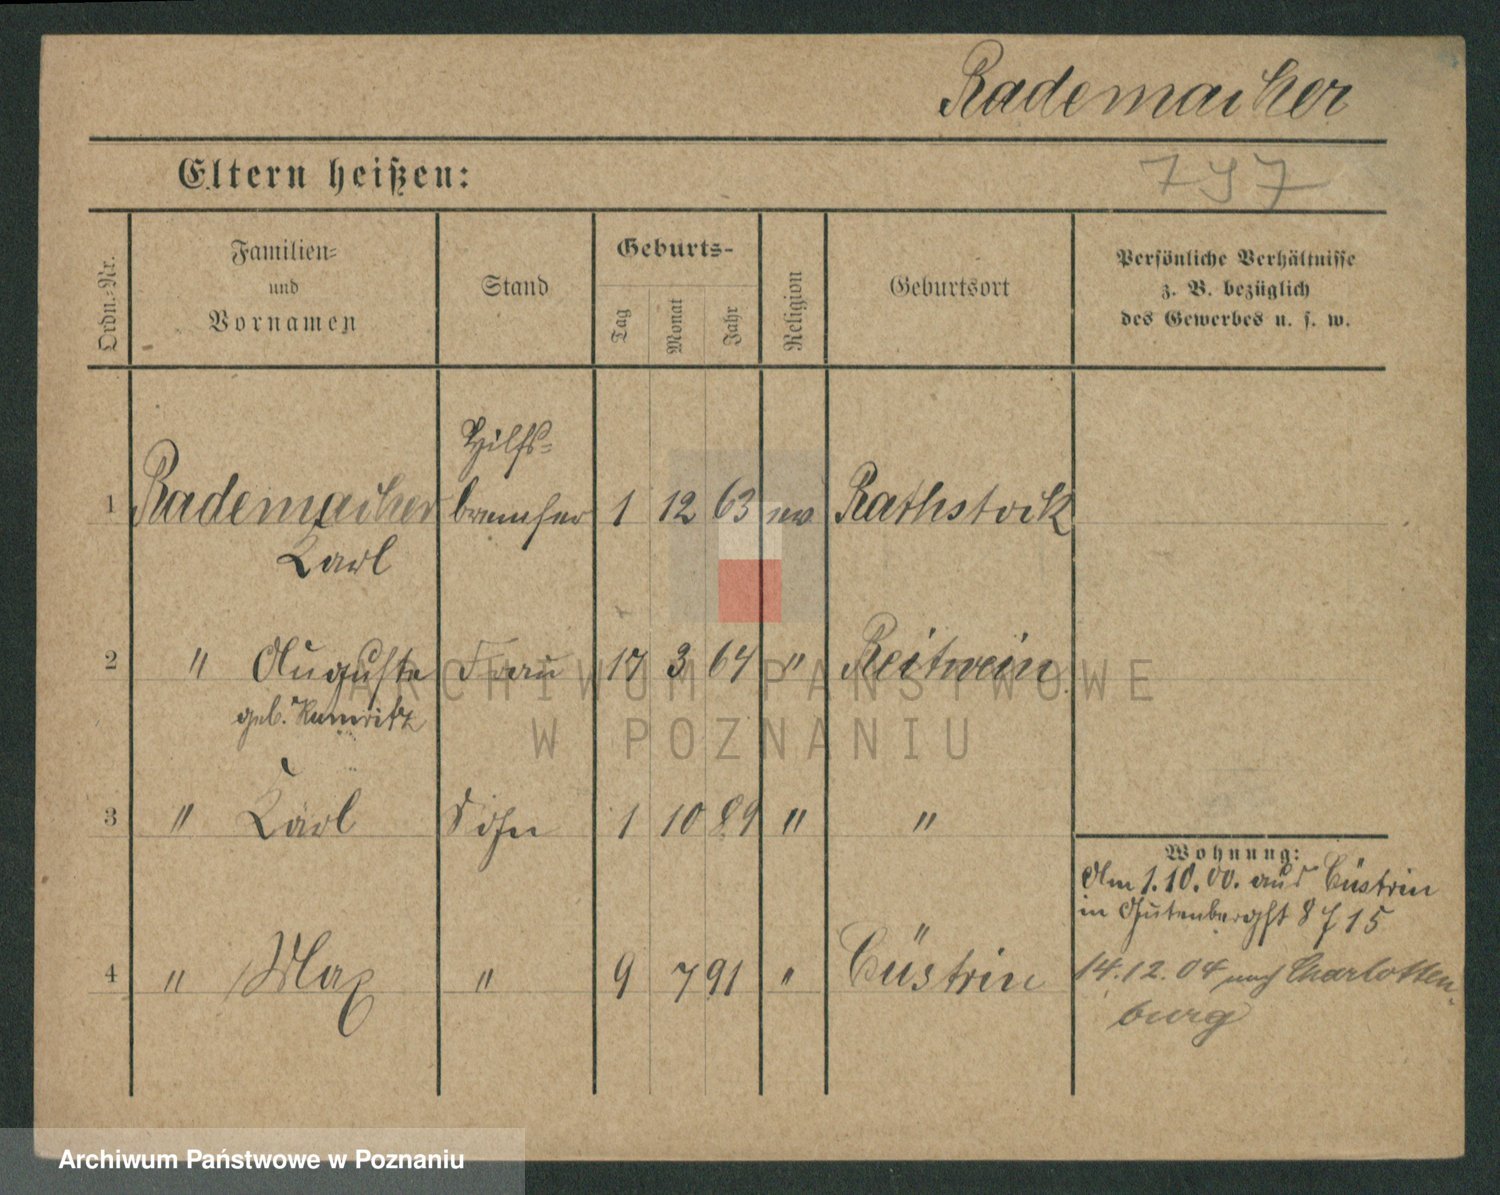 Rademacher
Eltern heißen:
797
Ordn.-Nr.
Familien-
und
Vornamen
Stand
Geburts-
Tag
Monat
Jahr
Religion
Geburtsort
Persönliche Verhältnisse
z. B. bezüglich
des Gewerbes u. s. w.
Hilfs-
1 Rademacher bremser 1 12 63 ev Rathstock
Karl
2 " Auguste Frau 17 3 64 " Reitwein
geb.
3 " Karl Sohn 1 10 89 " "
Wohnung:
Am 1.10.00. aus Cüstrin
in Gutenbergst 8 f 15
4 " Max " 9 7 91 " Cüstrin
14.12.04 nach Charlotten-
burg
ARCHIWUM PAŃSTWOWE
W POZNANIU
Archiwum Państwowe w Poznaniu